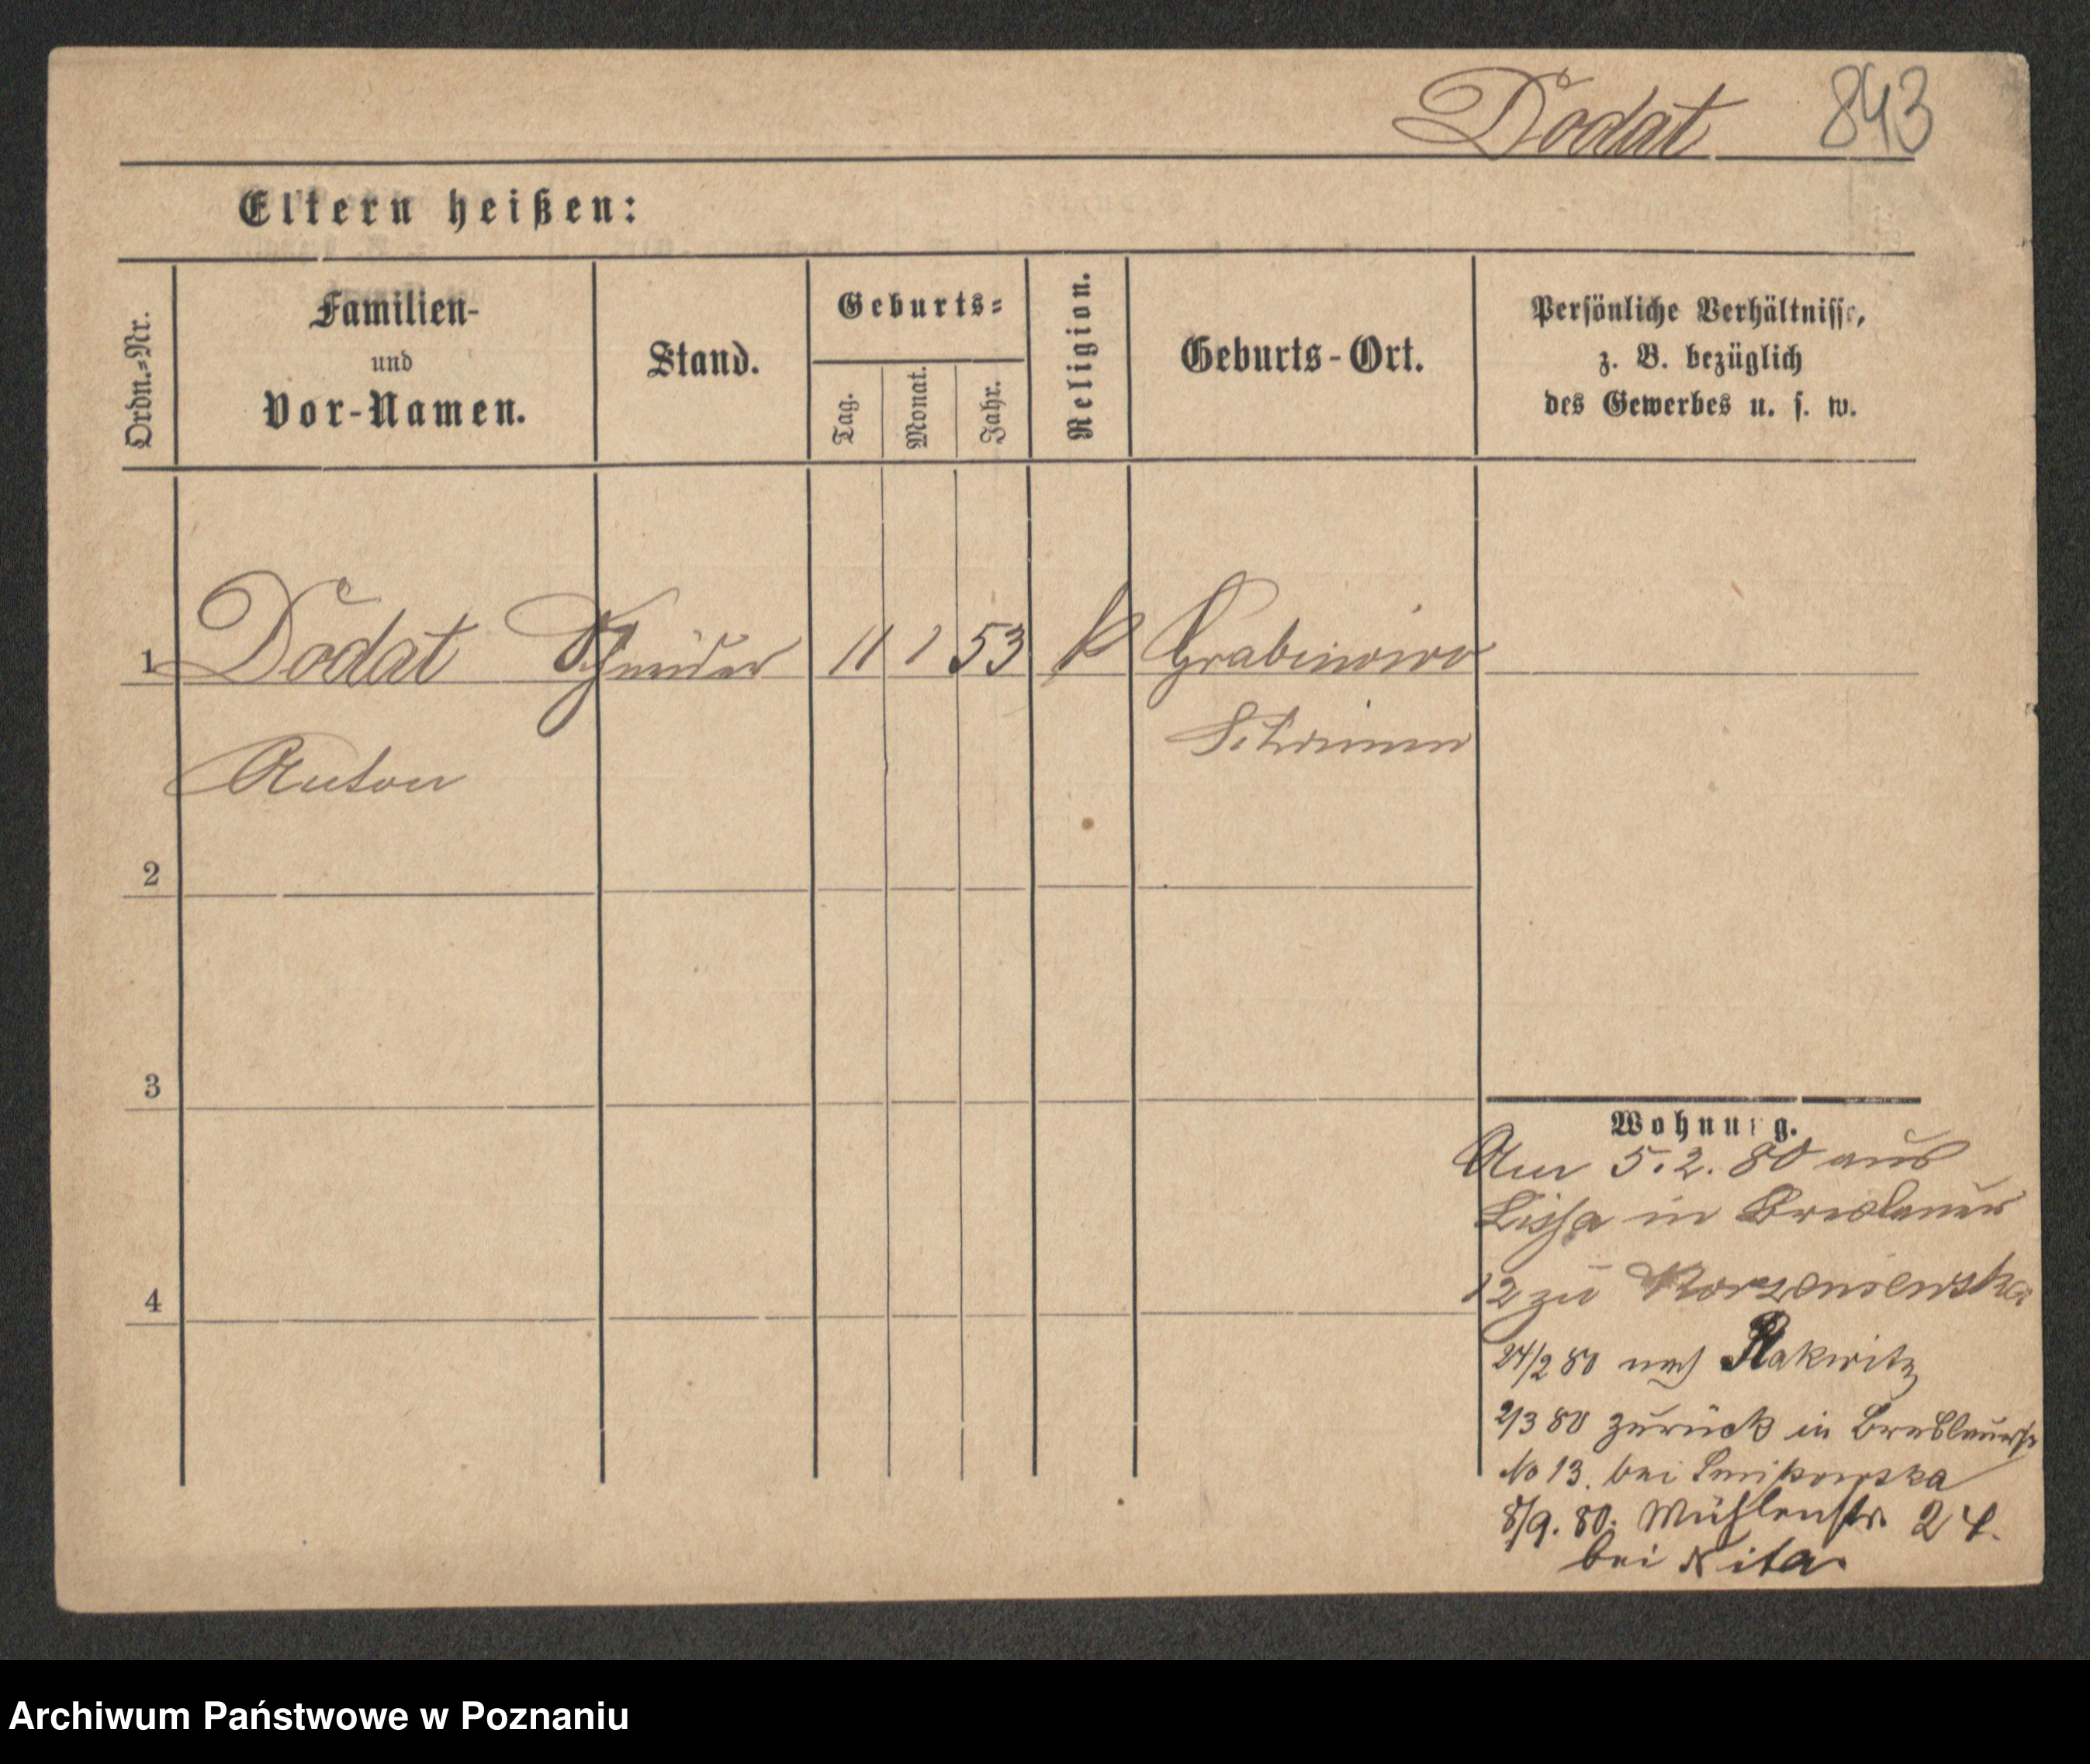 Dodat 843
Eltern heißen:
Ordn.=Nr.
Familien-
und
Vor-Namen.
Stand.
Geburts=
Tag.
Monat.
Jahr.
Religion.
Geburts-Ort.
Persönliche Verhältnisse,
z. B. bezüglich
des Gewerbes u. s. w.
1 Dodat Schneider 11 1 53 k Grabinowo
Schrimm
Anton
2
3
4
Wohnung.
Am 5.2.80 aus
Lissa in Breslauer
12 zu Korzeniewska
24/2 80 nach Rakwitz
2/3 80 zurück in Breslauerstr
No 13. bei
8/9. 80. Mühlenstr. 24.
bei Nita.
Archiwum Państwowe w Poznaniu